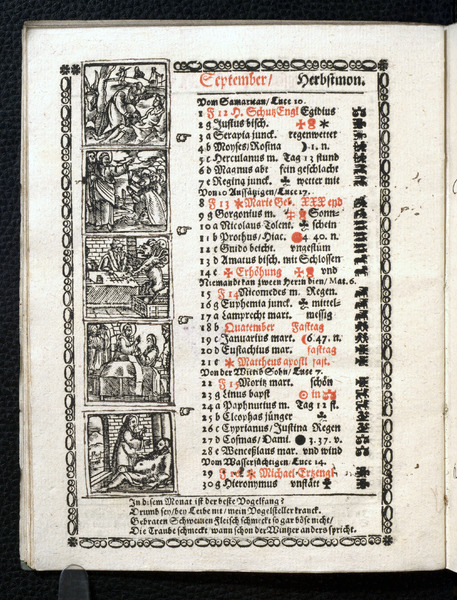 September/ Herbstmon.
Vom Samaritan/Luce 10.
1 F 12 H. SchutzEngl Egidius
2 g Justus bisch.
3 a Serapia junck. regenwetter
4 b Moyses/Rosina 1. n.
5 c Herculanus m. Tag 13 stund
6 d Magnus abt fein geschlacht
7 e Regina junck. wetter mit
Von 10 Aussätzigen/Luce 17.
8 F 13 Marie Geb. XXX eyd
9 g Gorgonius m. Sonn-
10 a Nicolaus Tolent. schein
11 b Prothus/Hiac. 4 40. n.
12 c Guido beicht. vngestüm
13 d Amatus bisch. mit Schlossen
14 e Erhöhung vnd
Niemandt kan zween Herrn dien/Mat. 6.
15 F 14 Nicomedes m. Regen.
16 g Euphemia junck. mittel-
17 a Lamprecht mart. messig
18 b Quatember Fasttag
19 c Januarius mart. 6.47. n.
20 d Eustachius mar. fasttag
21 e Mattheus apostl fast.
Von der Wittib Sohn/Luce 7.
22 F 15 Moritz mart. schön
23 g Linus bapst in
24 a Paphnutius m. Tag 12 st.
25 b Cleophas jünger
26 c Cyprianus/Justina Regen
27 d Cosmas/Dami. 3.37. v.
28 e Wenceslaus mar. vnd wind
Vom Wassersüchtigen/Luce 14.
29 F Michael Ertzengl
30 g Hieronymus vnstätt
In disem Monat ist der beste Vogelfang?
Drumb sey bey Leibe nit/mein Vogelsteller kranck.
Gebraten Schwainen Fleisch schmeckt so gar böse nicht/
Die Traube schmeckt wann schon der Wintzer anders spricht.